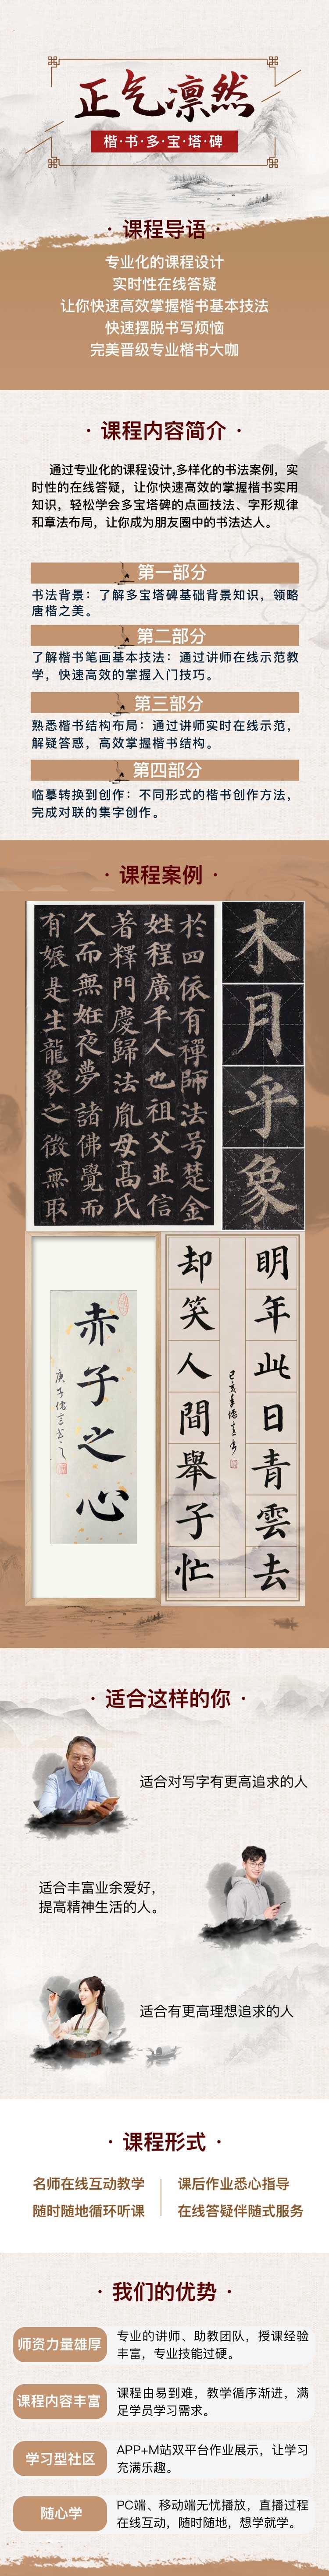 正气凛然
楷·书·多·宝·塔·碑
· 课程导语 ·
专业化的课程设计
实时性在线答疑
让你快速高效掌握楷书基本技法
快速摆脱书写烦恼
完美晋级专业楷书大咖
· 课程内容简介 ·
通过专业化的课程设计,多样化的书法案例，实
时性的在线答疑，让你快速高效的掌握楷书实用
知识，轻松学会多宝塔碑的点画技法、字形规律
和章法布局，让你成为朋友圈中的书法达人。
第一部分
书法背景：了解多宝塔碑基础背景知识，领略
唐楷之美。
第二部分
了解楷书笔画基本技法：通过讲师在线示范教
学，快速高效的掌握入门技巧。
第三部分
熟悉楷书结构布局：通过讲师实时在线示范，
解疑答惑，高效掌握楷书结构。
第四部分
临摹转换到创作：不同形式的楷书创作方法，
完成对联的集字创作。
· 课程案例 ·
於四依有禪師法号楚金
姓程廣平人也祖父並信
著釋門慶歸法胤母高氏
久而無妊夜夢諸佛覺而
有娠是生龍象之徵無取
木
月
乎
象
赤子之心
明年此日青雲去
却笑人間舉子忙
· 适合这样的你 ·
适合对写字有更高追求的人
适合丰富业余爱好，
提高精神生活的人。
适合有更高理想追求的人
· 课程形式 ·
名师在线互动教学
课后作业悉心指导
随时随地循环听课
在线答疑伴随式服务
· 我们的优势 ·
师资力量雄厚
专业的讲师、助教团队，授课经验
丰富，专业技能过硬。
课程内容丰富
课程由易到难，教学循序渐进，满
足学员学习需求。
学习型社区
APP+M站双平台作业展示，让学习
充满乐趣。
随心学
PC端、移动端无忧播放，直播过程
在线互动，随时随地，想学就学。